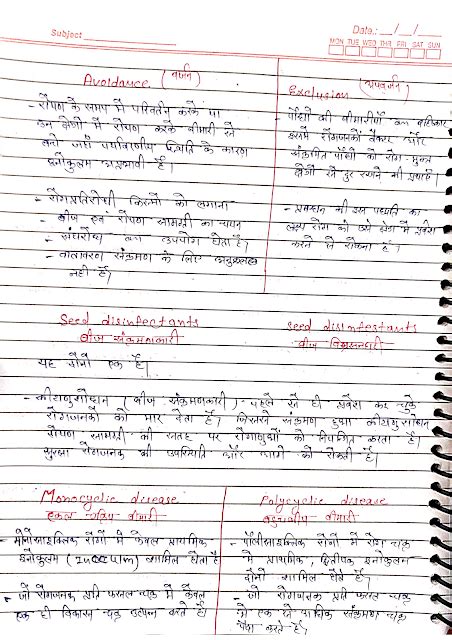 Subject
Date: / /
MON TUE WED THR FRI SAT SUN
Avoidance (वर्जन)
- रोपण के समय में परिवर्तन करके या
उन क्षेत्रों में रोपण करके बीमारी से
बचें जहाँ पर्यावरणीय स्थिति के कारण
इनोकुलम अप्रभावी है।
- रोगप्रतिरोधी किस्मों को लगाना
- बीज एवं रोपण सामग्री का चयन
- का उपयोग होता है।
- वातावरण संक्रमण के लिए अनुकूल
नहीं है।
Exclusion (अपवर्जन)
- पौधों की बीमारियों का बहिष्कार
इसमें रोगजनकों वेक्टर और
संक्रमित पौधों को रोग-मुक्त
क्षेत्रों से दूर रखने की प्रथाएँ।
- प्रबंधन की इस पद्धति का
लक्ष्य रोग को क्षेत्र में प्रवेश
करने से रोकना है।
Seed disinfectants
बीज संक्रमणकारी
seed disinfestants
बीज
यह दोनों एक है।
- कीटाणुशोधन (बीज संक्रमणकारी) पहले से ही प्रवेश कर चुके
रोगजनकों को मार देता है। संक्रमण हुआ कीटाणुशोधन
रोपण सामग्री की सतह पर रोगाणुओं को नियंत्रित करता है।
सुरक्षा रोगजनक की उपस्थिति और आगे को रोकती है।
Monocyclic disease
एकल चक्रिय बीमारी
- मोनोसाइक्लिक रोगों में केवल प्राथमिक
इनोकुलम शामिल होता है
- जो रोगजनक प्रति फसल चक्र में केवल
एक ही विकास चक्र उत्पन्न करते हैं।
Polycyclic disease
बहुचक्रीय बीमारी
- पॉलीसाइक्लिक रोगों में रोग चक्र
में प्राथमिक, द्वितीयक इनोकुलम
दोनों शामिल होते हैं।
- जो रोगजनक प्रति फसल चक्र
में एक से अधिक संक्रमण चक्र
पैदा करते हैं।